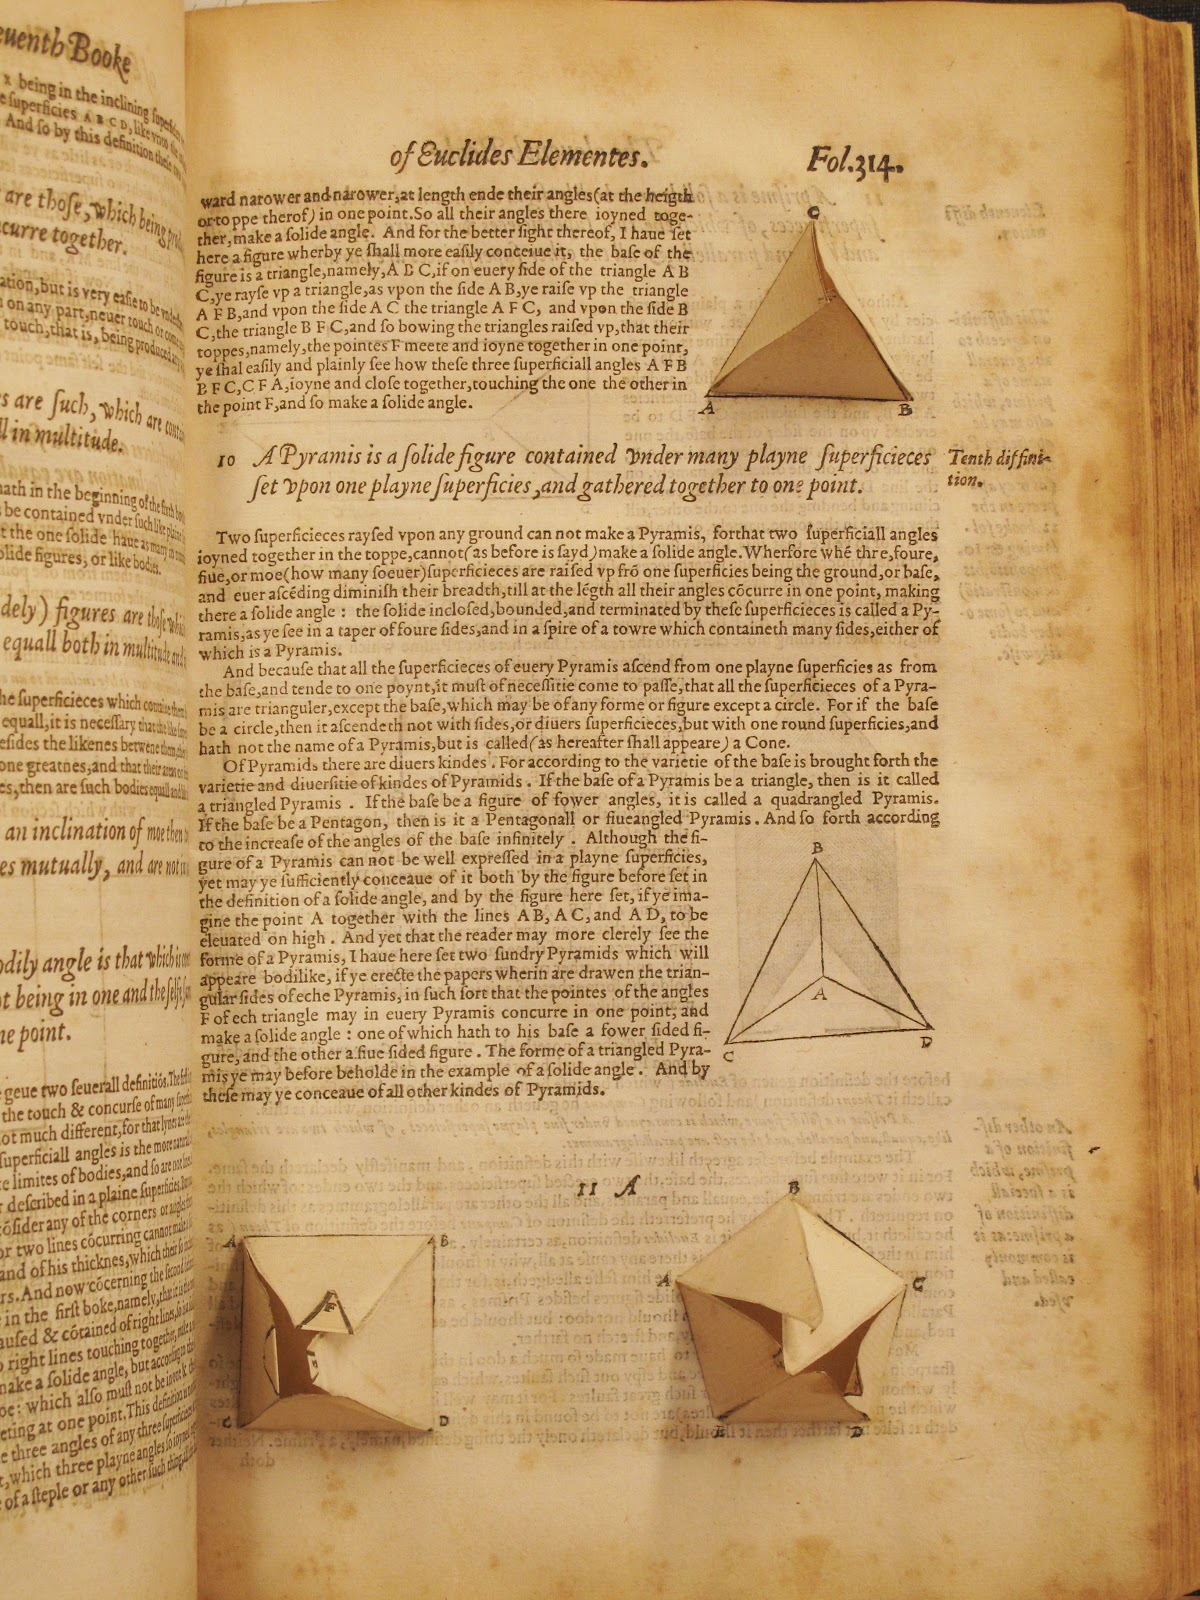 euenth Booke
x being in the inclining superfi
e superficies A B C D, like vpon the
And so by this definition these
are those, which being
curre together.
ation, but is very easie to be
on any part, neuer touch or
touch, that is, being produced
s are such, which are
ll in multitude.
hath in the beginning of the
be contained vnder such like
t the one solide haue as many
olide figures, or like bodies.
dely) figures are those
equall both in multitude and
he superficieces which
equall, it is necessary that
esides the likenes betwene
one greatnes, and that their
es, then are such bodies equall and
an inclination of moe then
es mutually, and are not
odily angle is that which is
ot being in one and the selfe
ne point.
geue two seuerall definitiõs. The
the touch & concurse of many
ot much different, for that lynes are
superficiall angles is the more
e limites of bodies, and so are not
r described in a plaine superficies
cõsider any of the corners or angles
or two lines cõcurring cannot make
and of his thicknes, which
rs. And now cõcerning the second
in the first boke, namely, that
aused & cõtained of right lines
right lines touching together
make a solide angle, but according
oe: which also must not be
eting at one point. This definition
e three angles of any three superficieces
t, which three playne angles so ioyned
of a steple or any other such thing
of Euclides Elementes.
Fol. 314.
ward narower and narower, at length ende their angles (at the heigth
or toppe therof) in one point. So all their angles there ioyned toge-
ther, make a solide angle. And for the better sight thereof, I haue set
here a figure wherby ye shall more easily conceiue it, the base of the
figure is a triangle, namely, A B C, if on euery side of the triangle A B
C, ye rayse vp a triangle, as vpon the side A B, ye raise vp the triangle
A F B, and vpon the side A C the triangle A F C, and vpon the side B
C, the triangle B F C, and so bowing the triangles raised vp, that their
toppes, namely, the pointes F meete and ioyne together in one point,
ye shal easily and plainly see how these three superficiall angles A F B
B F C, C F A, ioyne and close together, touching the one the other in
the point F, and so make a solide angle.
C
A
B
10 A Pyramis is a solide figure contained vnder many playne superficieces
set vpon one playne superficies, and gathered together to one point.
Tenth diffini-
tion.
Two superficieces raysed vpon any ground can not make a Pyramis, for that two superficiall angles
ioyned together in the toppe, cannot (as before is sayd) make a solide angle. Wherfore whẽ thre, foure,
fiue, or moe (how many soeuer) superficieces are raised vp frõ one superficies being the ground, or base,
and euer ascẽding diminish their breadth, till at the lẽgth all their angles cõcurre in one point, making
there a solide angle : the solide inclosed, bounded, and terminated by these superficieces is called a Py-
ramis, as ye see in a taper of foure sides, and in a spire of a towre which containeth many sides, either of
which is a Pyramis.
And because that all the superficieces of euery Pyramis ascend from one playne superficies as from
the base, and tende to one poynt, it must of necessitie come to passe, that all the superficieces of a Pyra-
mis are trianguler, except the base, which may be of any forme or figure except a circle. For if the base
be a circle, then it ascendeth not with sides, or diuers superficieces, but with one round superficies, and
hath not the name of a Pyramis, but is called (as hereafter shall appeare) a Cone.
Of Pyramids there are diuers kindes. For according to the varietie of the base is brought forth the
varietie and diuersitie of kindes of Pyramids. If the base of a Pyramis be a triangle, then is it called
a triangled Pyramis. If the base be a figure of fower angles, it is called a quadrangled Pyramis.
If the base be a Pentagon, then is it a Pentagonall or fiueangled Pyramis. And so forth according
to the increase of the angles of the base infinitely. Although the fi-
gure of a Pyramis can not be well expressed in a playne superficies,
yet may ye sufficiently conceaue of it both by the figure before set in
the definition of a solide angle, and by the figure here set, if ye ima-
gine the point A together with the lines A B, A C, and A D, to be
eleuated on high. And yet that the reader may more clerely see the
forme of a Pyramis, I haue here set two sundry Pyramids which will
appeare bodilike, if ye erecte the papers wherin are drawen the trian-
gular sides of eche Pyramis, in such sort that the pointes of the angles
F of ech triangle may in euery Pyramis concurre in one point, and
make a solide angle : one of which hath to his base a fower sided fi-
gure, and the other a fiue sided figure. The forme of a triangled Pyra-
mis ye may before beholde in the example of a solide angle. And by
these may ye conceaue of all other kindes of Pyramids.
B
A
C
D
11 A
A
B
F
C
D
B
A
C
E
D